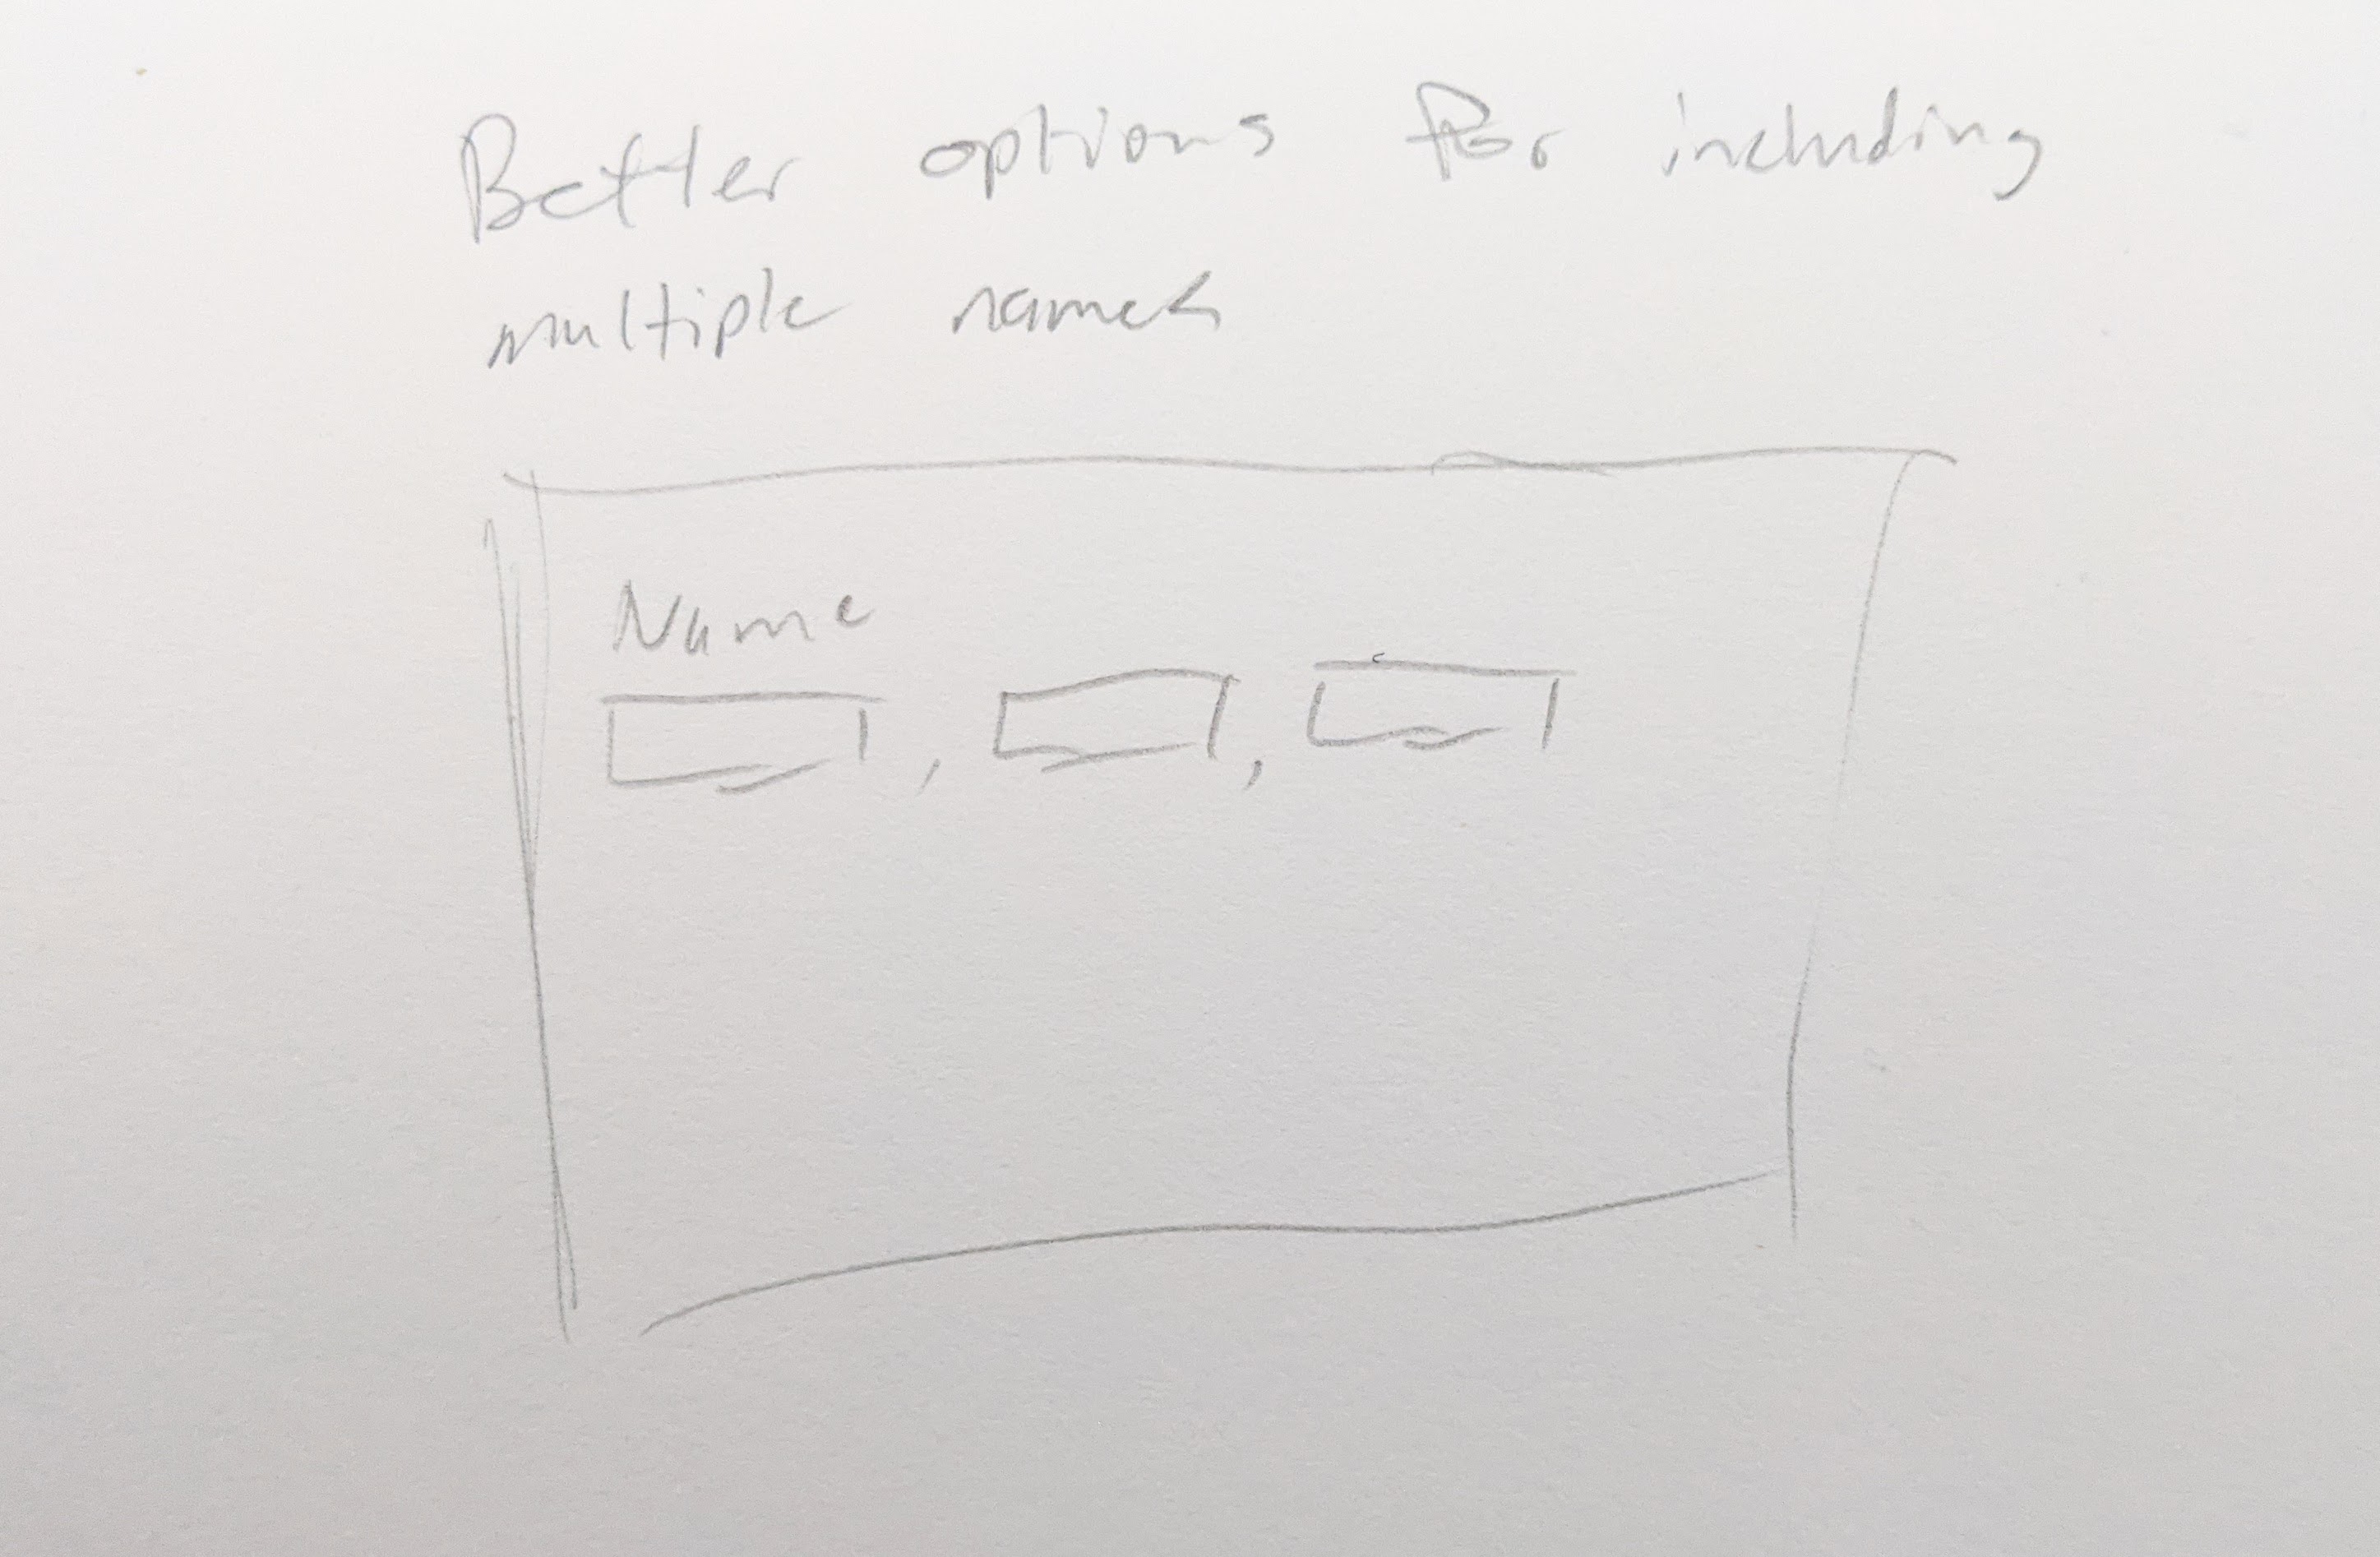 Better options for including
multiple names
Name
, ,